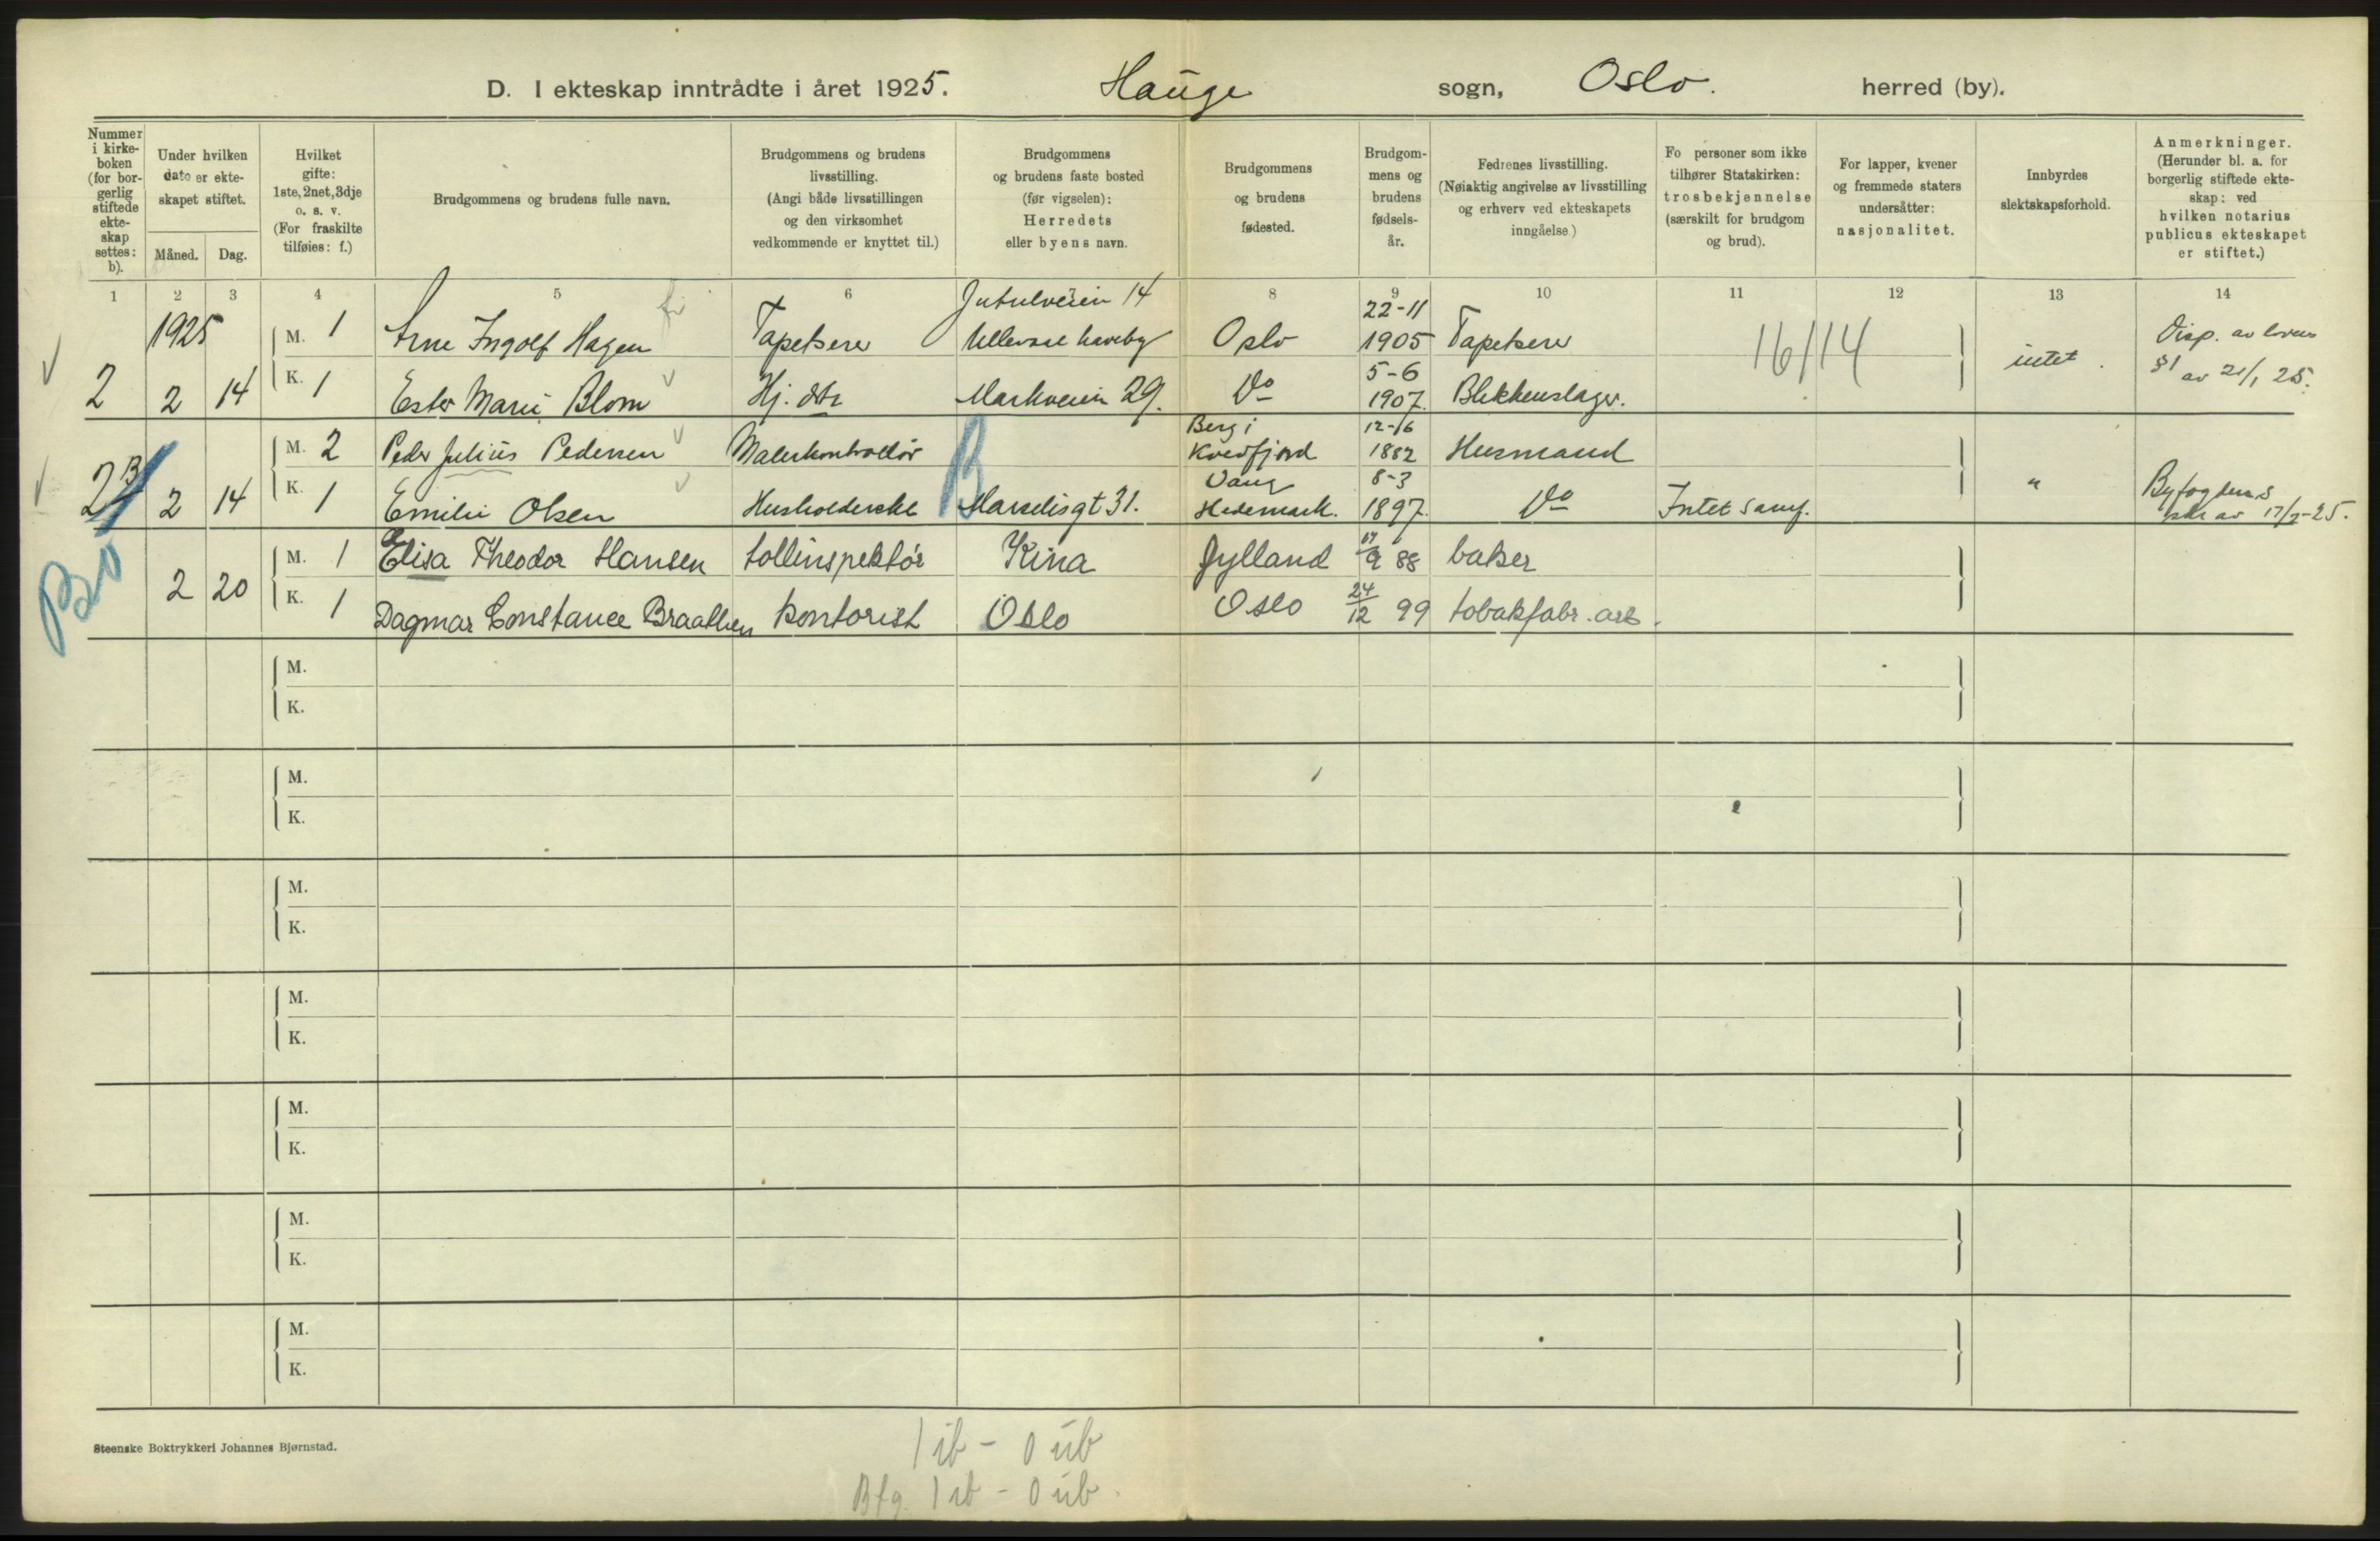 D. I ekteskap inntrådte i året 1925. Hauge sogn, Oslo. herred (by).
Nummer i kirke-boken (for bor-gerlig stiftede ekte-skap settes: b).
Under hvilken dato er ekte-skapet stiftet.
Måned. Dag.
Hvilket gifte: 1ste, 2net, 3dje o. s. v. (For fraskilte tilføies: f.)
Brudgommens og brudens fulle navn.
Brudgommens og brudens livsstilling. (Angi både livsstillingen og den virksomhet vedkommende er knyttet til.)
Brudgommens og brudens faste bosted (før vigselen): Herredets eller byens navn.
Brudgommens og brudens fødested.
Brudgom-mens og brudens fødsels-år.
Fedrenes livsstilling. (Nøiaktig angivelse av livsstilling og erhverv ved ekteskapets inngåelse.)
Fo personer som ikke tilhører Statskirken: trosbekjennelse (særskilt for brudgom og brud).
For lapper, kvener og fremmede staters undersåtter: nasjonalitet.
Innbyrdes slektskapsforhold.
Anmerkninger. (Herunder bl. a. for borgerlig stiftede ekte-skap: ved hvilken notarius publicus ekteskapet er stiftet.)
1 2 3 4 5 6 7 8 9 10 11 12 13 14
1925 M. 1 Arne Ingolf Hagen Tapetserer Jutulveien 14 Ullevaal haveby Oslo 22-11 1905 Tapetserer 16/14 intet. Disp. av lovens
2 2 14 K. 1 Ester Marie Blom Hj. dtr Markveien 29. Do 5-6 1907. Blikkenslager. §1 av 21/1 25.
M. 2 Peder Julius Pedersen Malerkontrollør Berg i Kvedfjord 12-16 1882 Husmand
2B 2 14 K. 1 Emilie Olsen Husholderske B Marselisgt 31. Vang Hedemark. 8-3 1897. Do Intet samf. " Byfogdens skr av 17/2-25.
M. 1 Elisa Theodor Hansen tollinspektør Kina Jylland 17/9 88 baker
Bo 2 20 K. 1 Dagmar Constance Braathen kontorist Oslo Oslo 24/12 99 tobakfabr. arb.
M.
K.
M.
K.
M.
K.
M.
K.
M.
K.
M.
K.
M.
K.
Steenske Boktrykkeri Johannes Bjørnstad.
1 ib - 0 üb
Bfg. 1 ib - 0 üb.